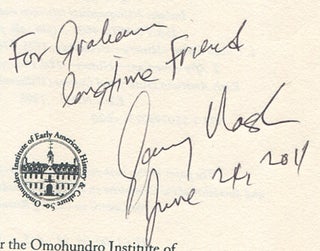 For Graham
longtime Friend
Gary Nash
June 24, 2011
Omohundro Institute of Early American History & Culture
r the Omohundro Institute of